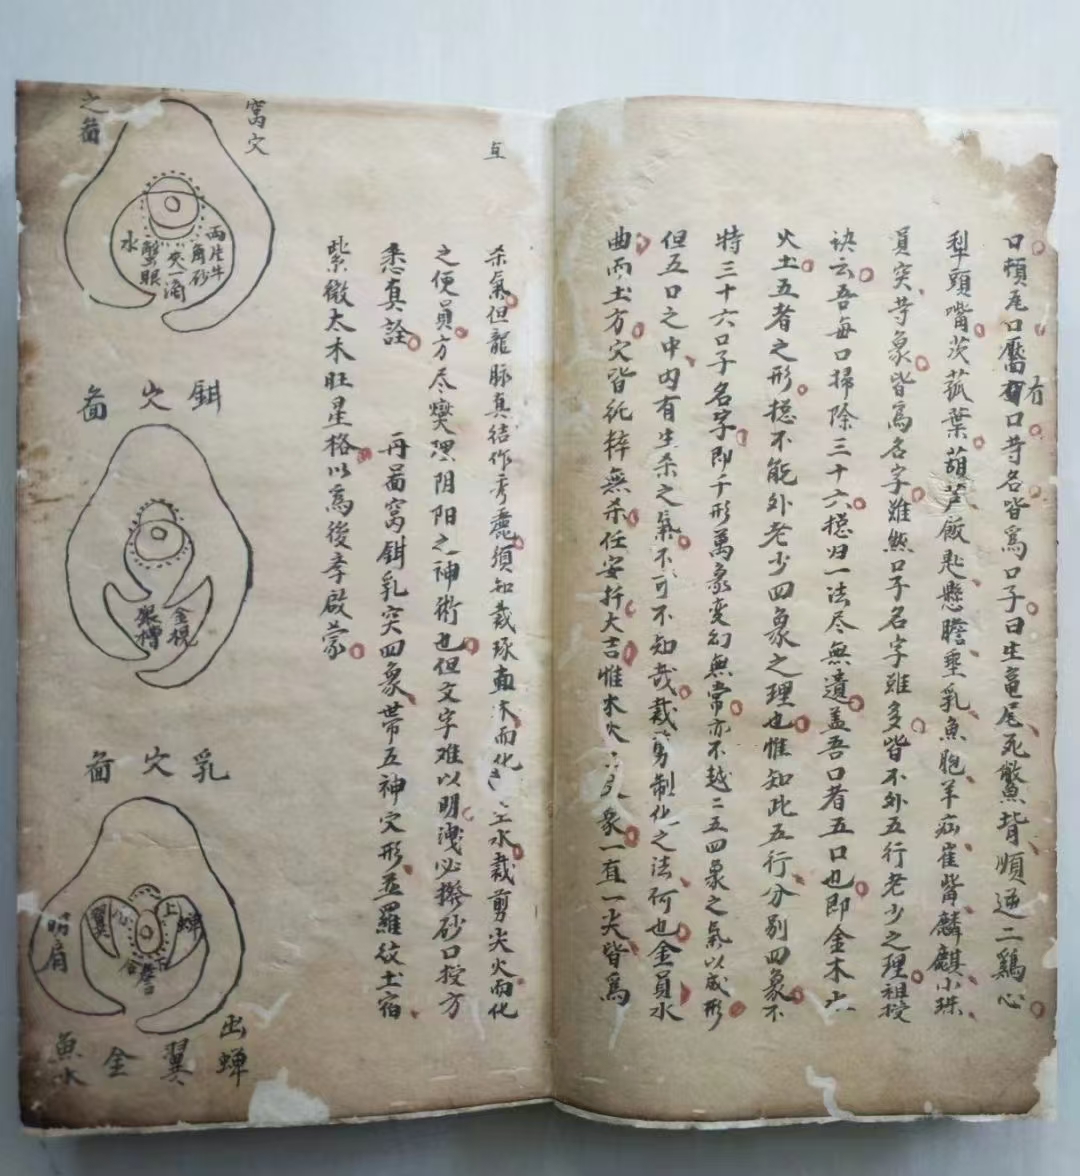 口頼尾口靨有口寺名皆爲口子曰生竜尾死鱉背順逆二鷄心
有
犁頭嘴茨菰葉葫芦飯匙懸膽垂乳魚胞羊疝雀觜麟麒小珠
員突寺象皆爲名字雖然口子名字雖多皆不外五行老少之理祖授
诀云吾每口掃除三十六摠归一法尽無遺盖吾口者五口也即金木水
火土五者之形摠不能外老少四象之理也惟知此五行分别四象不
特三十六口子名字即千形萬象变幻無常亦不越二五四象之氣以成形
但五口之中内有生杀之氣不可不知哉裁剪制化之法何也金員水
曲而土方穴皆純粹無杀任安扦大吉惟木火二象一直一尖皆爲
互
杀氣但龍脉真结作秀麗須知裁琢直木而化土水裁剪尖火而化
之便員方尽燮理阴阳之神術也但文字难以明洩必撥砂口授方
悉真詮
再啚窩鉗乳突四象带五神穴形並羅紋土宿
紫微太木旺星格以爲後孝啟蒙
窩穴
之啚
兩片牛
角砂
夾一滴
蟹眼
水
鉗穴啚
金梘
銀槽
乳穴啚
上
蟬
翼
合
簷
明肩
出蝉
翼
金
魚水